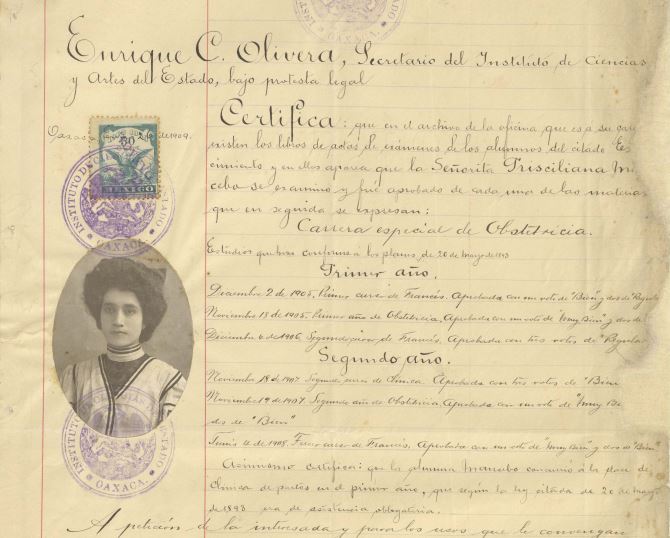 Enrique C. Olivera, Secretario del Instituto de Ciencias
y Artes del Estado, bajo protesta legal
Certifica: que en el archivo de la oficina, que es a su
existen los libros de actas de exámenes de los alumnos del citado Es
cimiento y en ellos aparece que la Señorita Prisciliana M
cebo se examinó y fué aprobada de cada una de las materias
que en seguida se expresan:
Carrera especial de Obstetricia.
Estudios que hizo conforme á los planes, de 20 de mayo de 1893
Primer año.
Diciembre 2 de 1905. Primer curso de Francés. Aprobada con un voto de "Bien" y dos de
Noviembre 18 de 1905. Primer año de Obstetricia, Aprobada con un voto de "Muy Bien" y dos de
Diciembre 6 de 1906, Segundo curso de Francés. Aprobada con tres votos de
Segundo año.
Noviembre 18 de 1907 Segundo curso de Clínica. Aprobada con tres votos de "Bien
Noviembre 19 de 1907. Segundo año de Obstetricia, Aprobada con un voto de "Muy Bi
dos de "Bien"
Junio 4 de 1908. Tercer curso de Francés, Aprobada con un voto de "Muy Bien" y dos de "Bien"
Asimismo certifica: que la alumna Mancebo concurrió á la clase de
Clínica de partos en el primer año, que según la ley citada de 20 de mayo
de 1893 era de asistencia obligatoria.
A petición de la interesada y para los usos que le convengan
Oaxaca de 1909.
MEXICO
INSTITUTO DE CIENCIAS ESTADO
OAXACA.
INSTITUTO ESTADO
OAXACA.
INSTITUTO
OAXACA.